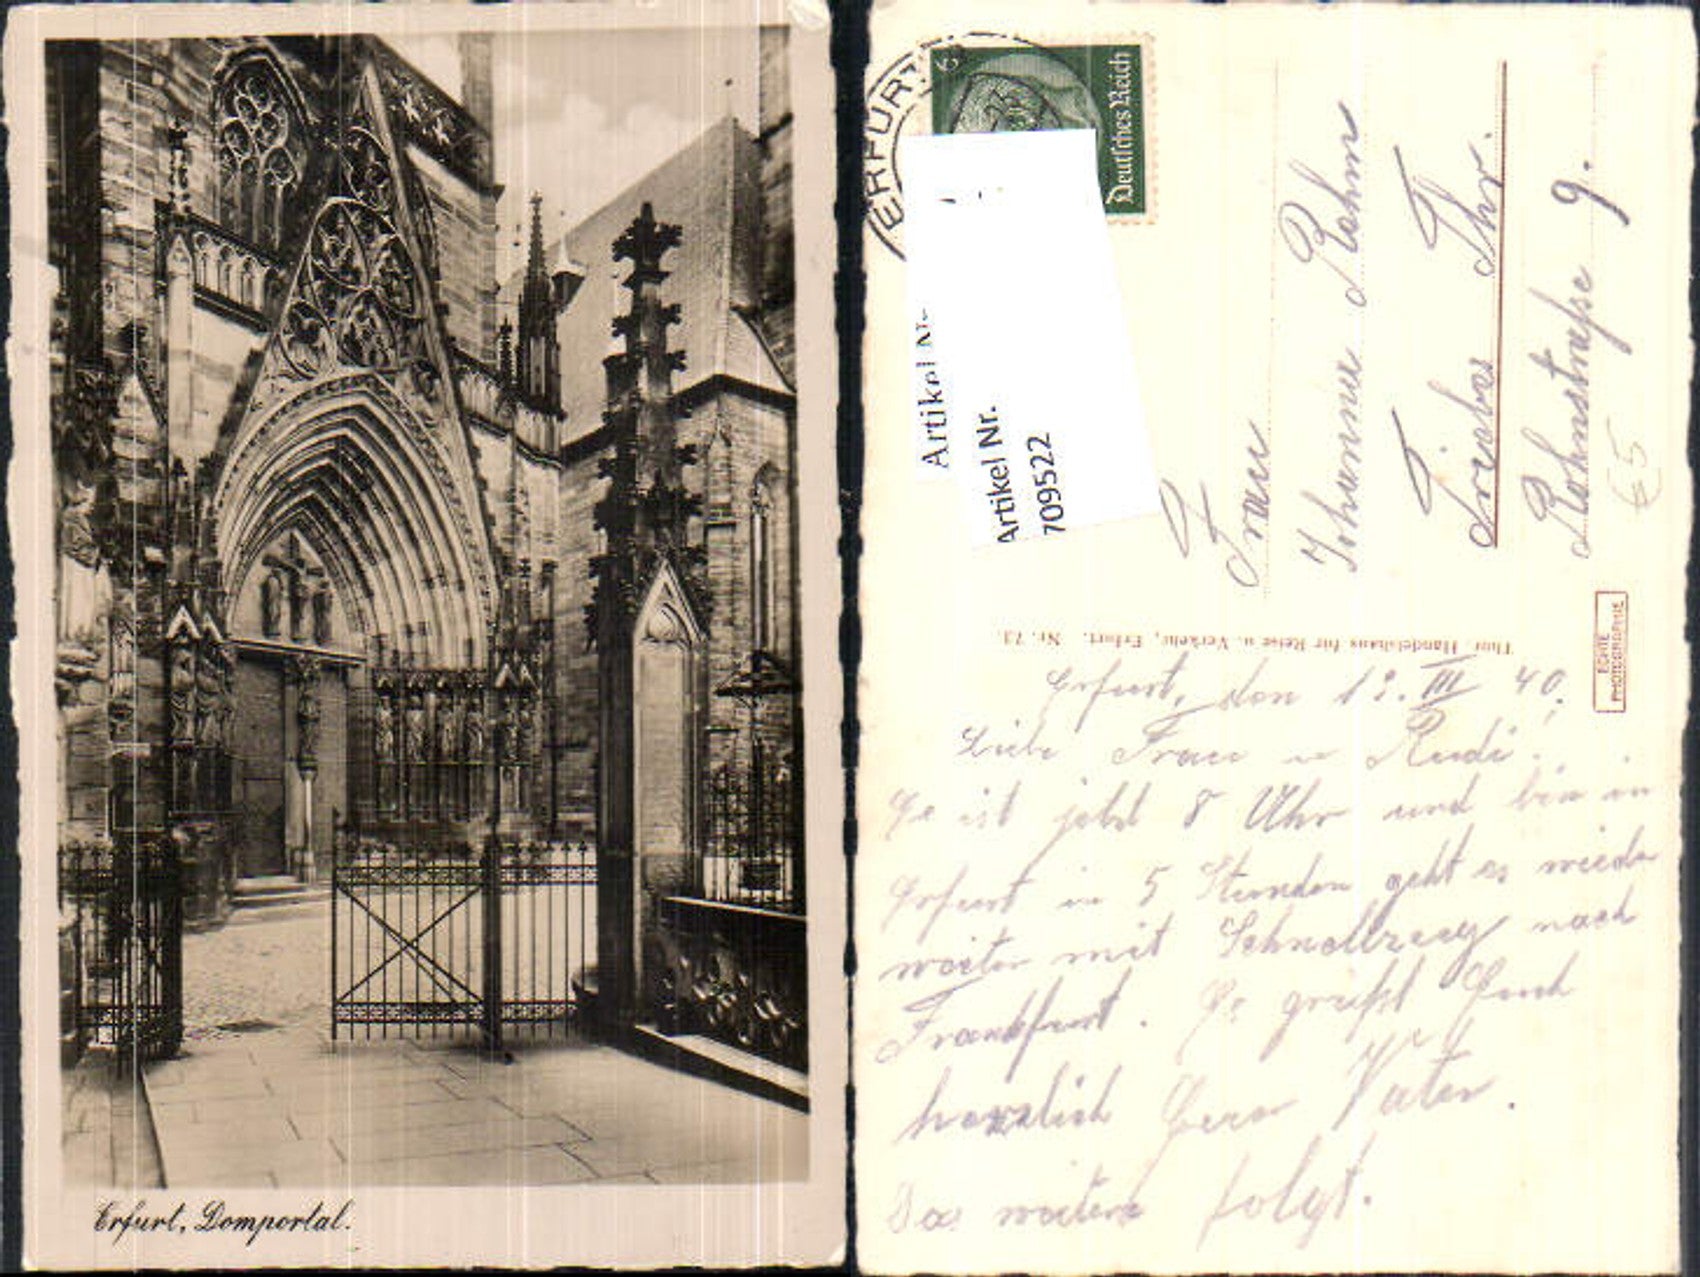 Erfurt, Domportal.
ERFURT
6
Deutsches Reich
Artikel Nr.
Artikel Nr.
709522
Frau
Johanna Rohm
Triebes Thr.
Rohnstraße 9.
€5
Thür. Handelshaus für Reise u. Verkehr, Erfurt. Nr. 73.
ECHTE
PHOTOGRAPHIE
Erfurt, den 13. III 40.
Liebe Frau u Rudi!
Es ist jetzt 8 Uhr und bin in
Erfurt in 5 Stunden geht es wieder
weiter mit Schnellzug nach
Frankfurt. Es grüßt Euch
herzlich Euer Vater.
Das weitere folgt.